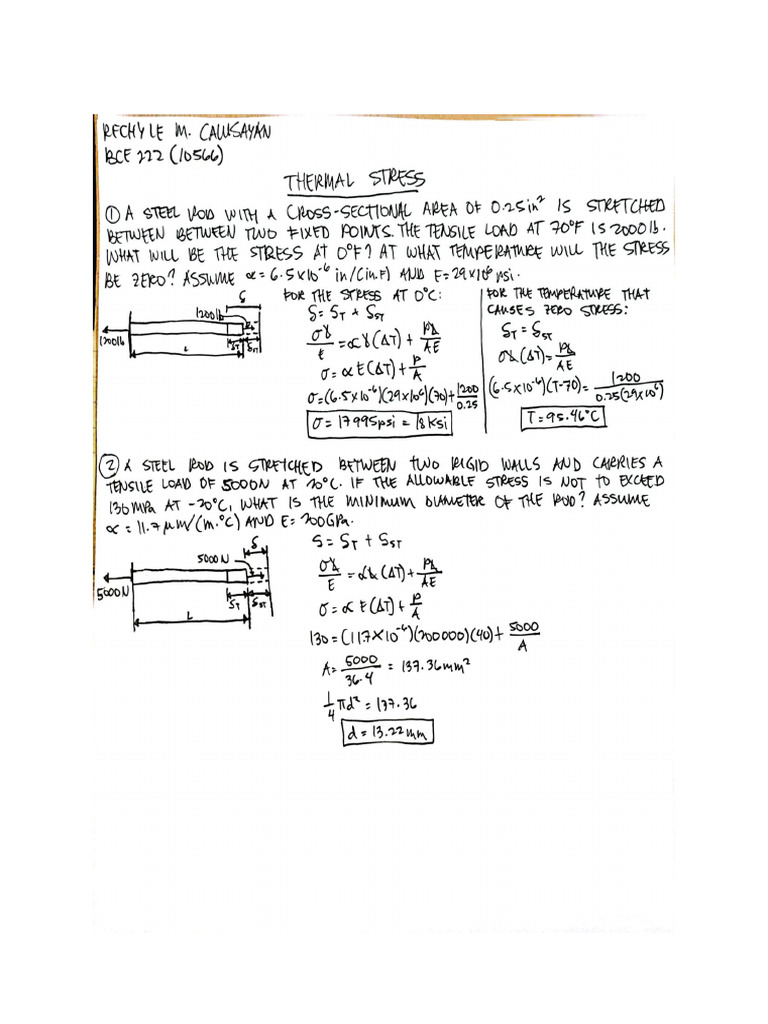 RECHYLE M. CAWSAYAN
BCE 222 (10566)
THERMAL STRESS
① A STEEL ROD WITH A CROSS-SECTIONAL AREA OF 0.25in² IS STRETCHED
BETWEEN BETWEEN TWO FIXED POINTS. THE TENSILE LOAD AT 70°F IS 2000 lb.
WHAT WILL BE THE STRESS AT 0°F? AT WHAT TEMPERATURE WILL THE STRESS
BE ZERO? ASSUME α = 6.5×10⁻⁶ in/(in.F) AND E=29×10⁶ psi.
δ
1200lb
1200lb
δT δST
L
FOR THE STRESS AT 0°C:
δ = δT + δST
σL/E = αL(ΔT) + PL/AE
σ = αE(ΔT) + P/A
σ=(6.5×10⁻⁶)(29×10⁶)(70)+1200/0.25
σ = 17995psi = 18Ksi
FOR THE TEMPERATURE THAT
CAUSES ZERO STRESS:
δT = δST
αL(ΔT) = PL/AE
(6.5×10⁻⁶)(T-70) = 1200/0.25(29×10⁶)
T = 95.46°C
② A STEEL ROD IS STRETCHED BETWEEN TWO RIGID WALLS AND CARRIES A
TENSILE LOAD OF 5000N AT 20°C. IF THE ALLOWABLE STRESS IS NOT TO EXCEED
130MPa AT -20°C, WHAT IS THE MINIMUM DIAMETER OF THE ROD? ASSUME
α = 11.7 μm/(m.°C) AND E= 200GPa.
δ
5000N
5000N
δT δST
L
δ = δT + δST
σL/E = αL(ΔT) + PL/AE
σ = αE(ΔT) + P/A
130 = (11.7×10⁻⁶)(200000)(40) + 5000/A
A = 5000/36.4 = 137.36mm²
1/4 πd² = 137.36
d = 13.22mm